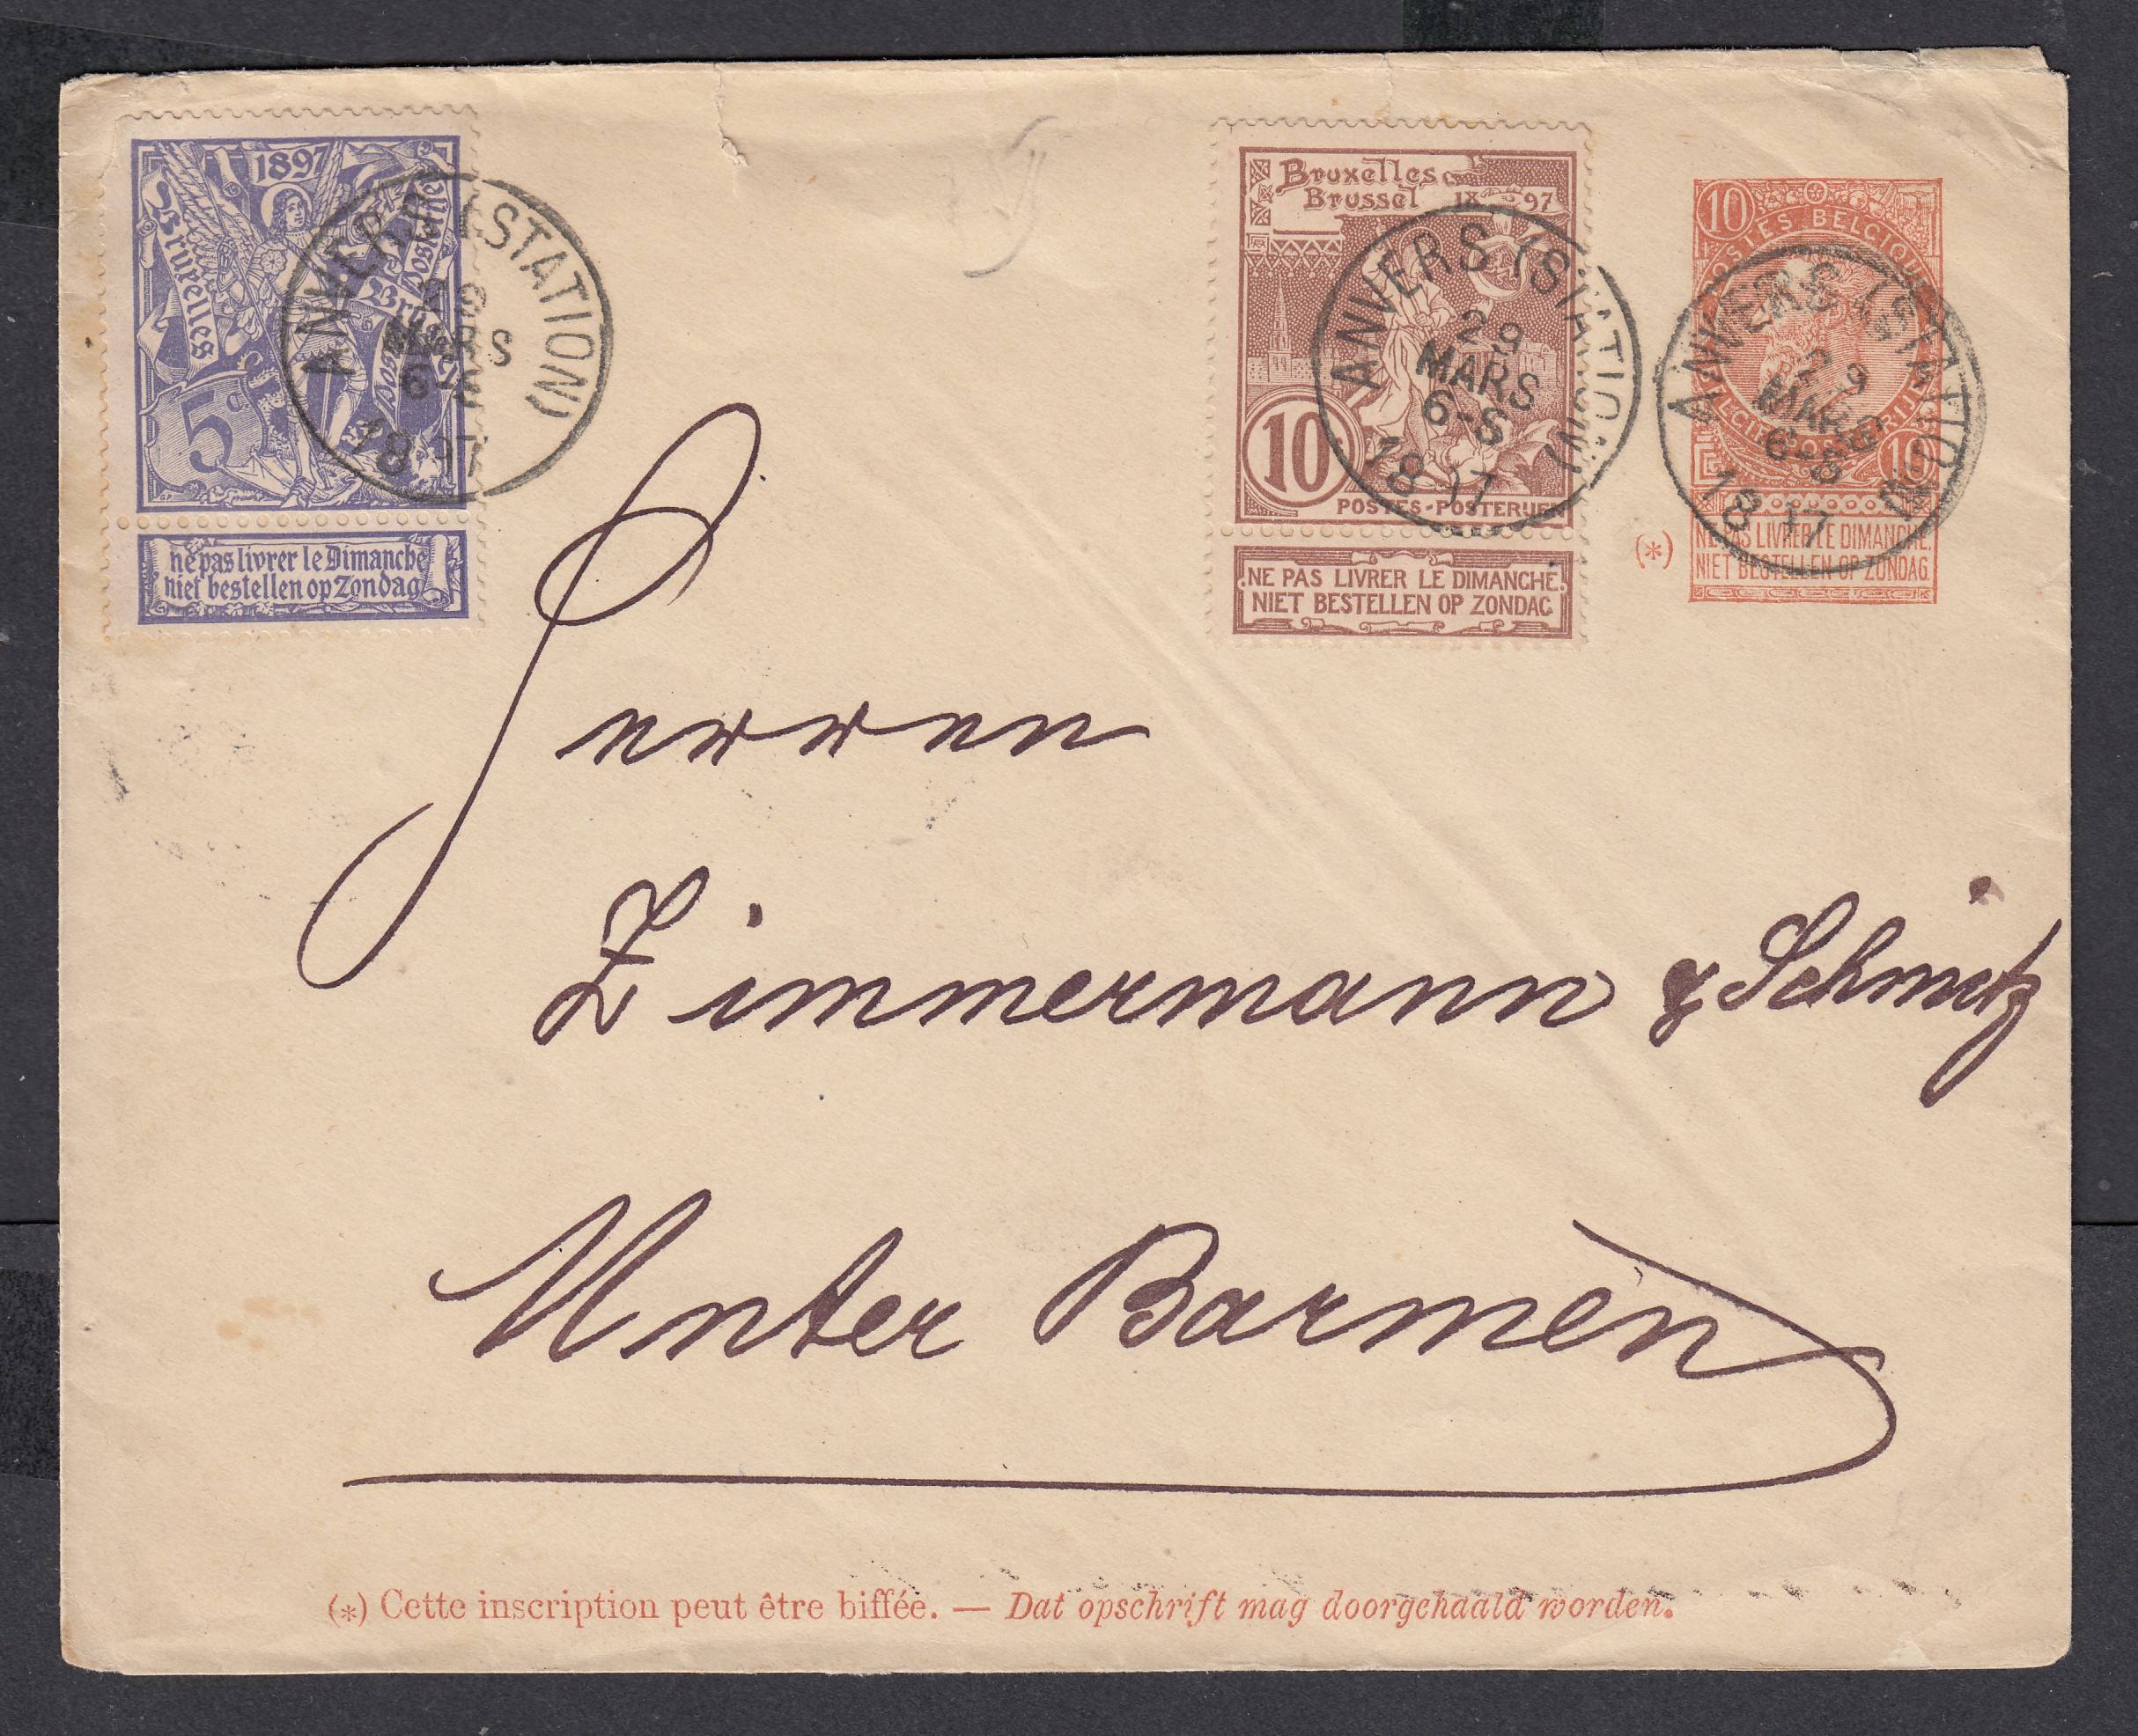 1897
Bruxelles
5c
ne pas livrer le Dimanche
niet bestellen op Zondag
ANVERS (STATION)
29
MARS
6-8
1897
Bruxelles
Brussel 18 97
10
POSTES-POSTERIJEN
NE PAS LIVRER LE DIMANCHE.
NIET BESTELLEN OP ZONDAG
ANVERS (STATION)
29
MARS
6-8
1897
10
POSTES BELGIQUE
10
NE PAS LIVRER LE DIMANCHE.
NIET BESTELLEN OP ZONDAG.
(*)
ANVERS (STATION)
29
MARS
6-8
1897
Herren
Zimmermann & Schmitz
Unter Barmen
(*) Cette inscription peut être biffée. — Dat opschrift mag doorgehaald worden.